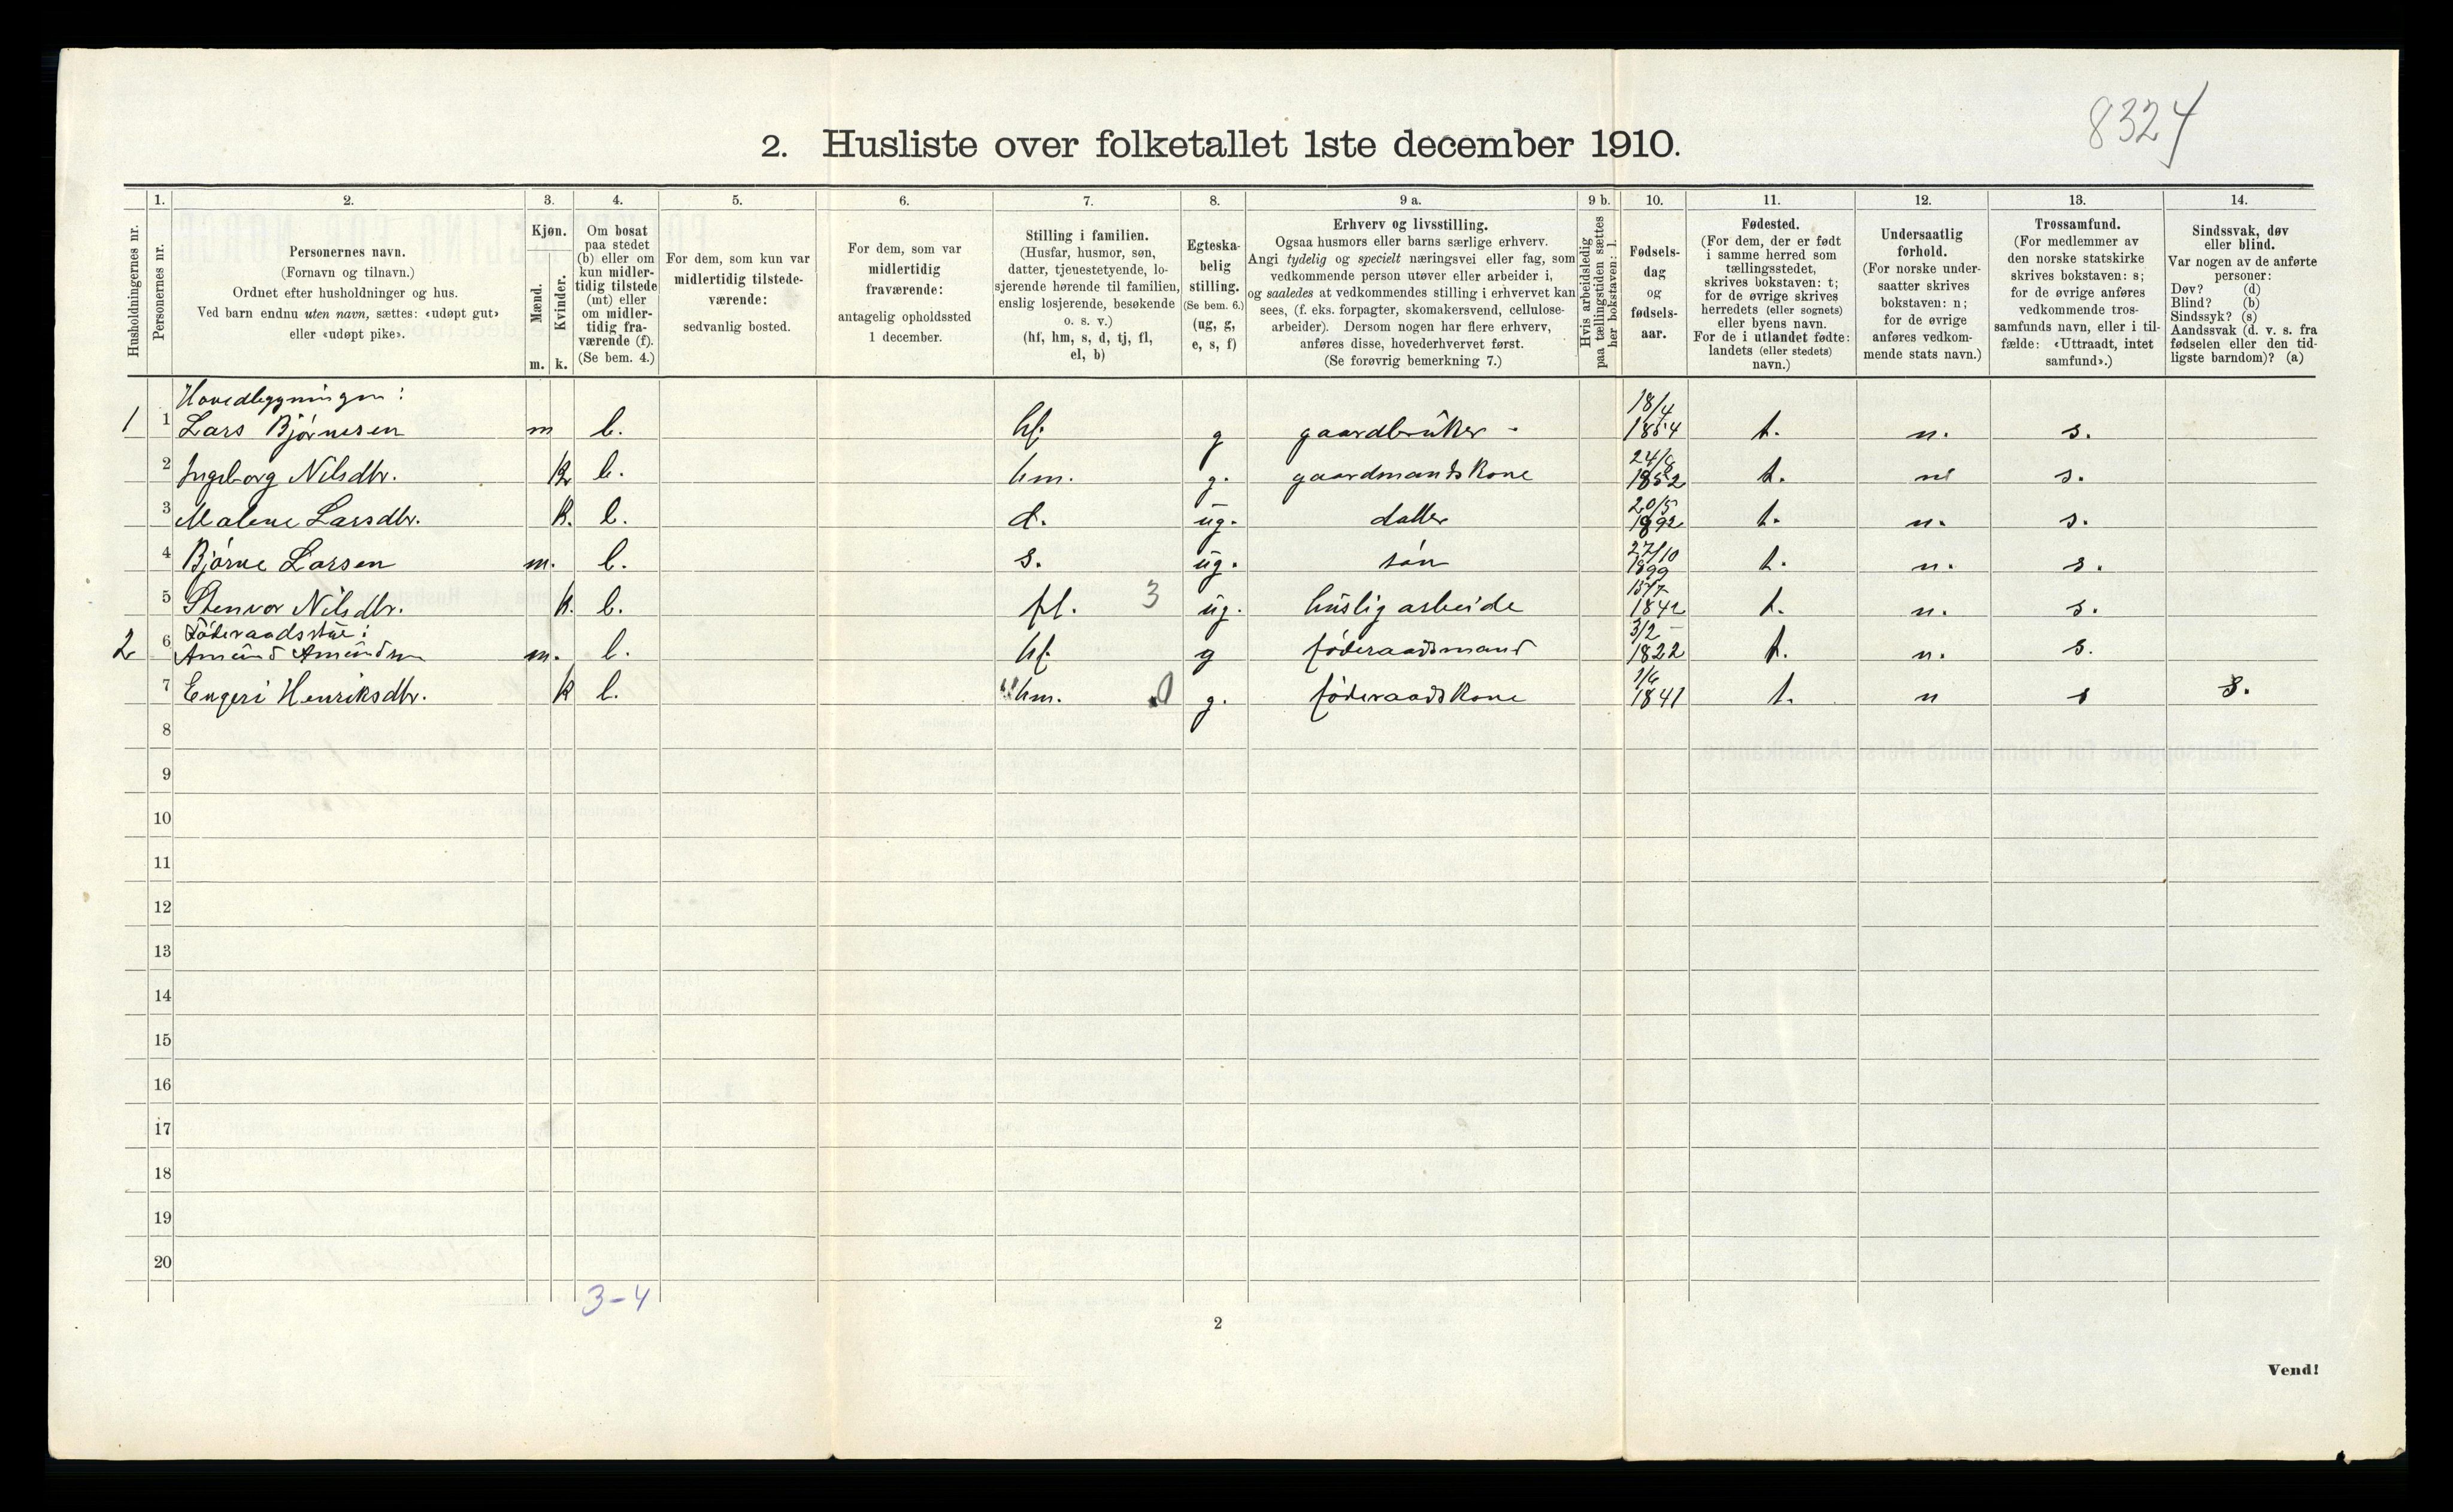 8324
2. Husliste over folketallet 1ste december 1910.
Husholdningernes nr.
1.
Personernes nr.
2.
Personernes navn.
(Fornavn og tilnavn.)
Ordnet efter husholdninger og hus.
Ved barn endnu uten navn, sættes: «udøpt gut»
eller «udøpt pike».
3.
Kjøn.
Mænd.
Kvinder.
m. k.
4.
Om bosat
paa stedet
(b) eller om
kun midler-
tidig tilstede
(mt) eller
om midler-
tidig fra-
værende (f).
(Se bem. 4.)
5.
For dem, som kun var
midlertidig tilstede-
værende:
sedvanlig bosted.
6.
For dem, som var
midlertidig
fraværende:
antagelig opholdssted
1 december.
7.
Stilling i familien.
(Husfar, husmor, søn,
datter, tjenestetyende, lo-
sjerende hørende til familien,
enslig losjerende, besøkende
o. s. v.)
(hf, hm, s, d, tj, fl,
el, b)
8.
Egteska-
belig
stilling.
(Se bem. 6.)
(ug, g,
e, s, f)
9 a.
Erhverv og livsstilling.
Ogsaa husmors eller barns særlige erhverv.
Angi tydelig og specielt næringsvei eller fag, som
vedkommende person utøver eller arbeider i,
og saaledes at vedkommendes stilling i erhvervet kan
sees, (f. eks. forpagter, skomakersvend, cellulose-
arbeider). Dersom nogen har flere erhverv,
anføres disse, hovederhvervet først.
(Se forøvrig bemerkning 7.)
9 b.
Hvis arbeidsledig
paa tællingstiden sættes
her bokstaven: l.
10.
Fødsels-
dag
og
fødsels-
aar.
11.
Fødested.
(For dem, der er født
i samme herred som
tællingsstedet,
skrives bokstaven: t;
for de øvrige skrives
herredets (eller sognets)
eller byens navn.
For de i utlandet fødte:
landets (eller stedets)
navn.)
12.
Undersaatlig
forhold.
(For norske under-
saatter skrives
bokstaven: n;
for de øvrige
anføres vedkom-
mende stats navn.)
13.
Trossamfund.
(For medlemmer av
den norske statskirke
skrives bokstaven: s;
for de øvrige anføres
vedkommende tros-
samfunds navn, eller i til-
fælde: «Uttraadt, intet
samfund».)
14.
Sindssvak, døv
eller blind.
Var nogen av de anførte
personer:
Døv? (d)
Blind? (b)
Sindssyk? (s)
Aandssvak (d. v. s. fra
fødselen eller den tid-
ligste barndom)? (a)
Hovedbygningen:
1 1 Lars Bjørnesen m b. hf. g gaardbruker - 18/4 1854 t. n. s.
2 Ingeborg Nilsdtr. k b. hm. g. gaardmandskone 24/8 1852 t. n s.
3 Malene Larsdtr. k. b. d. ug. datter 20/5 1892 t. n. s.
4 Bjørne Larsen m. b. s. ug. søn 27/10 1899 t. n. s.
5 Stenvor Nilsdtr. k. b. fl. 3 ug. huslig arbeide 1842 t. n. s.
Føderaadsstue:
2 6 Amund Amundsen m. b. hf. g føderaadsmand 3/2 1822 t. n. s.
7 Engeri Henriksdtr. k b. hm. 0 g. føderaadskone 1/6 1841 t. n s s.
8
9
10
11
12
13
14
15
16
17
18
19
20
3-4
2
Vend!